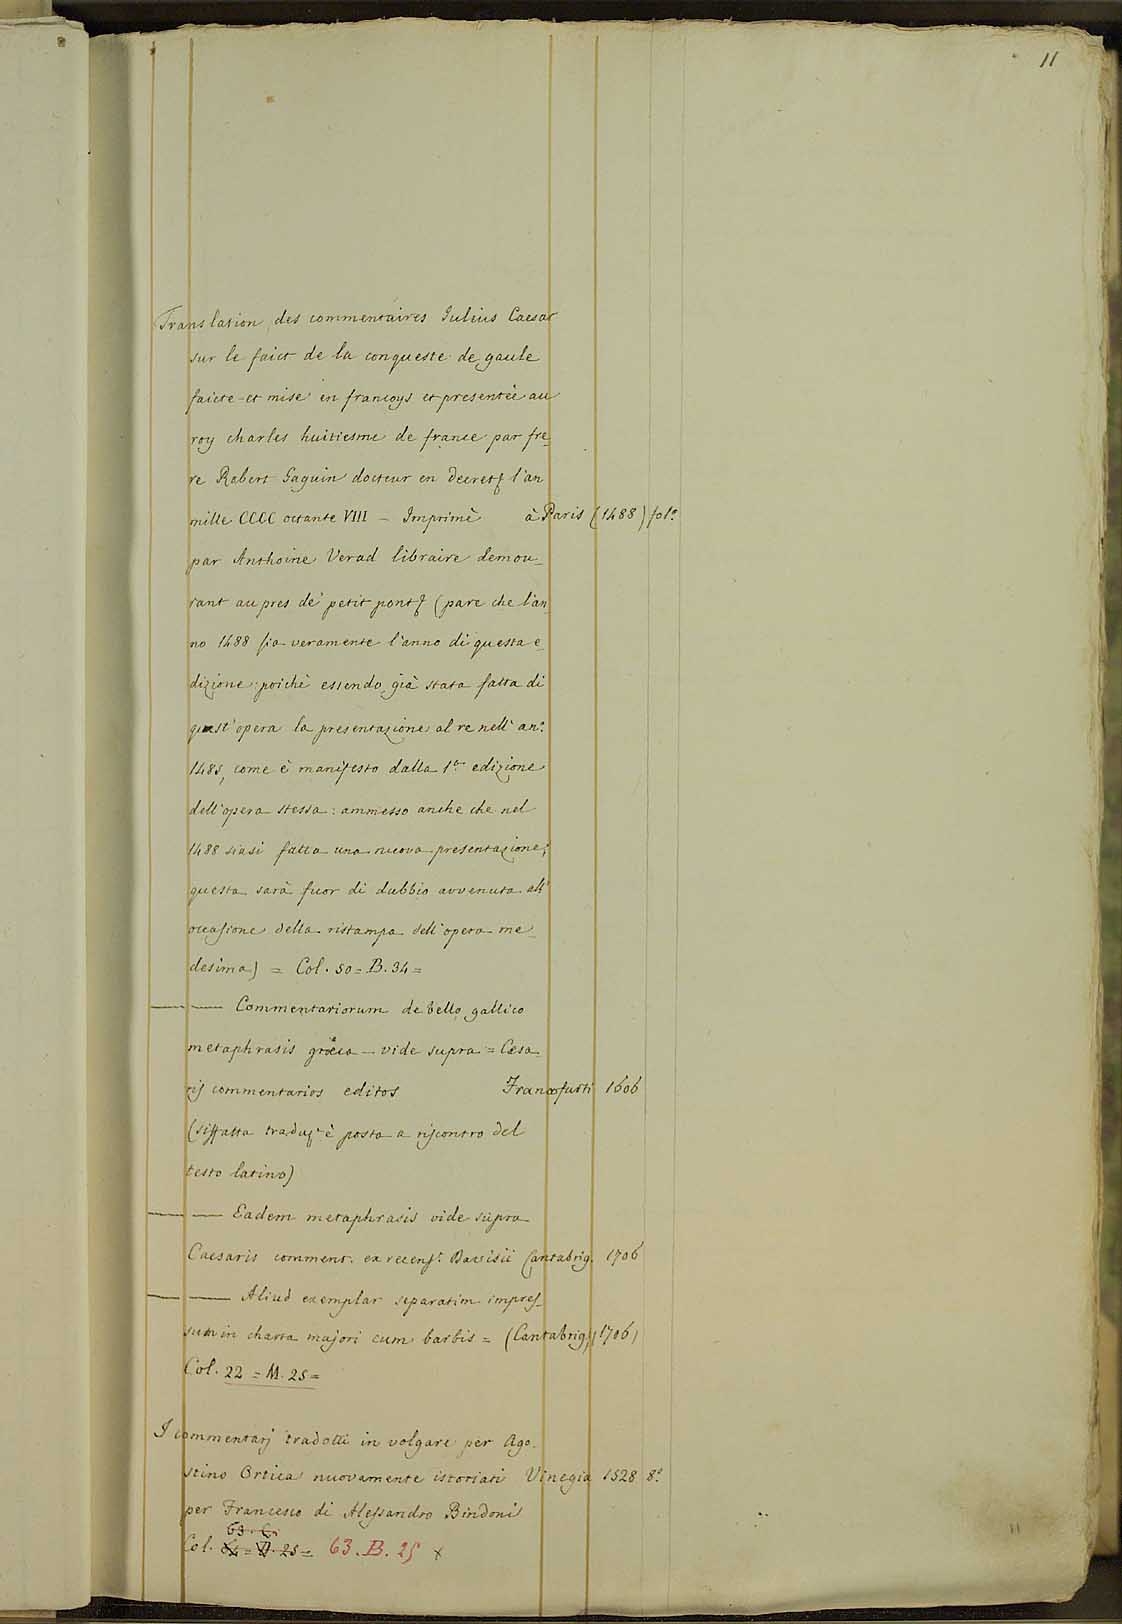 11
Translation des commentaires Iulius Caesar
sur le faict de la conqueste de gaule
faicte et mise en francoys et presentée au
roy charles huitiesme de france par fre_
re Robert Gaguin docteur en decretz l'an
mille CCCC octante VIII _ Imprimè à Paris (1488) fol°
par Anthoine Verad libraire demou_
rant au pres de petit pontz (pare che l'an_
no 1488 sia veramente l'anno di questa e_
dizione: poichè essendo già stata fatta di
quest'opera la presentazione al re nell'an°.
1485, come è manifesto dalla 1ª edizione
dell'opera stessa: ammesso anche che nel
1488 siasi fatta una nuova presentazione;
questa sarà fuor di dubbio avvenuta all'
occasione della ristampa dell'opera me_
desima) = Col. 50 = B. 34 =
—— —— Commentariorum de bello gallico
metaphrasis græca _ vide supra = Cæsa_
ris commentarios editos Francofurti 1606
(siffatta traduzᵉ è posta a riscontro del
testo latino)
—— —— Eadem metaphrasis vide supra
Caesaris comment. ex recensᵉ. Davisii Cantabrig. 1706
—— —— Aliud exemplar separatim impres_
sum in charta majori cum barbis = (Cantabrig.) (1706)
Col. 22 = M. 25 =
I commentarj tradotti in volgare per Ago_
stino Ortica nuovamente istoriati Vinegia 1528 8°
per Francesco di Alessandro Bindoni
63.
Col. 25 = 63. B. 25 x
11